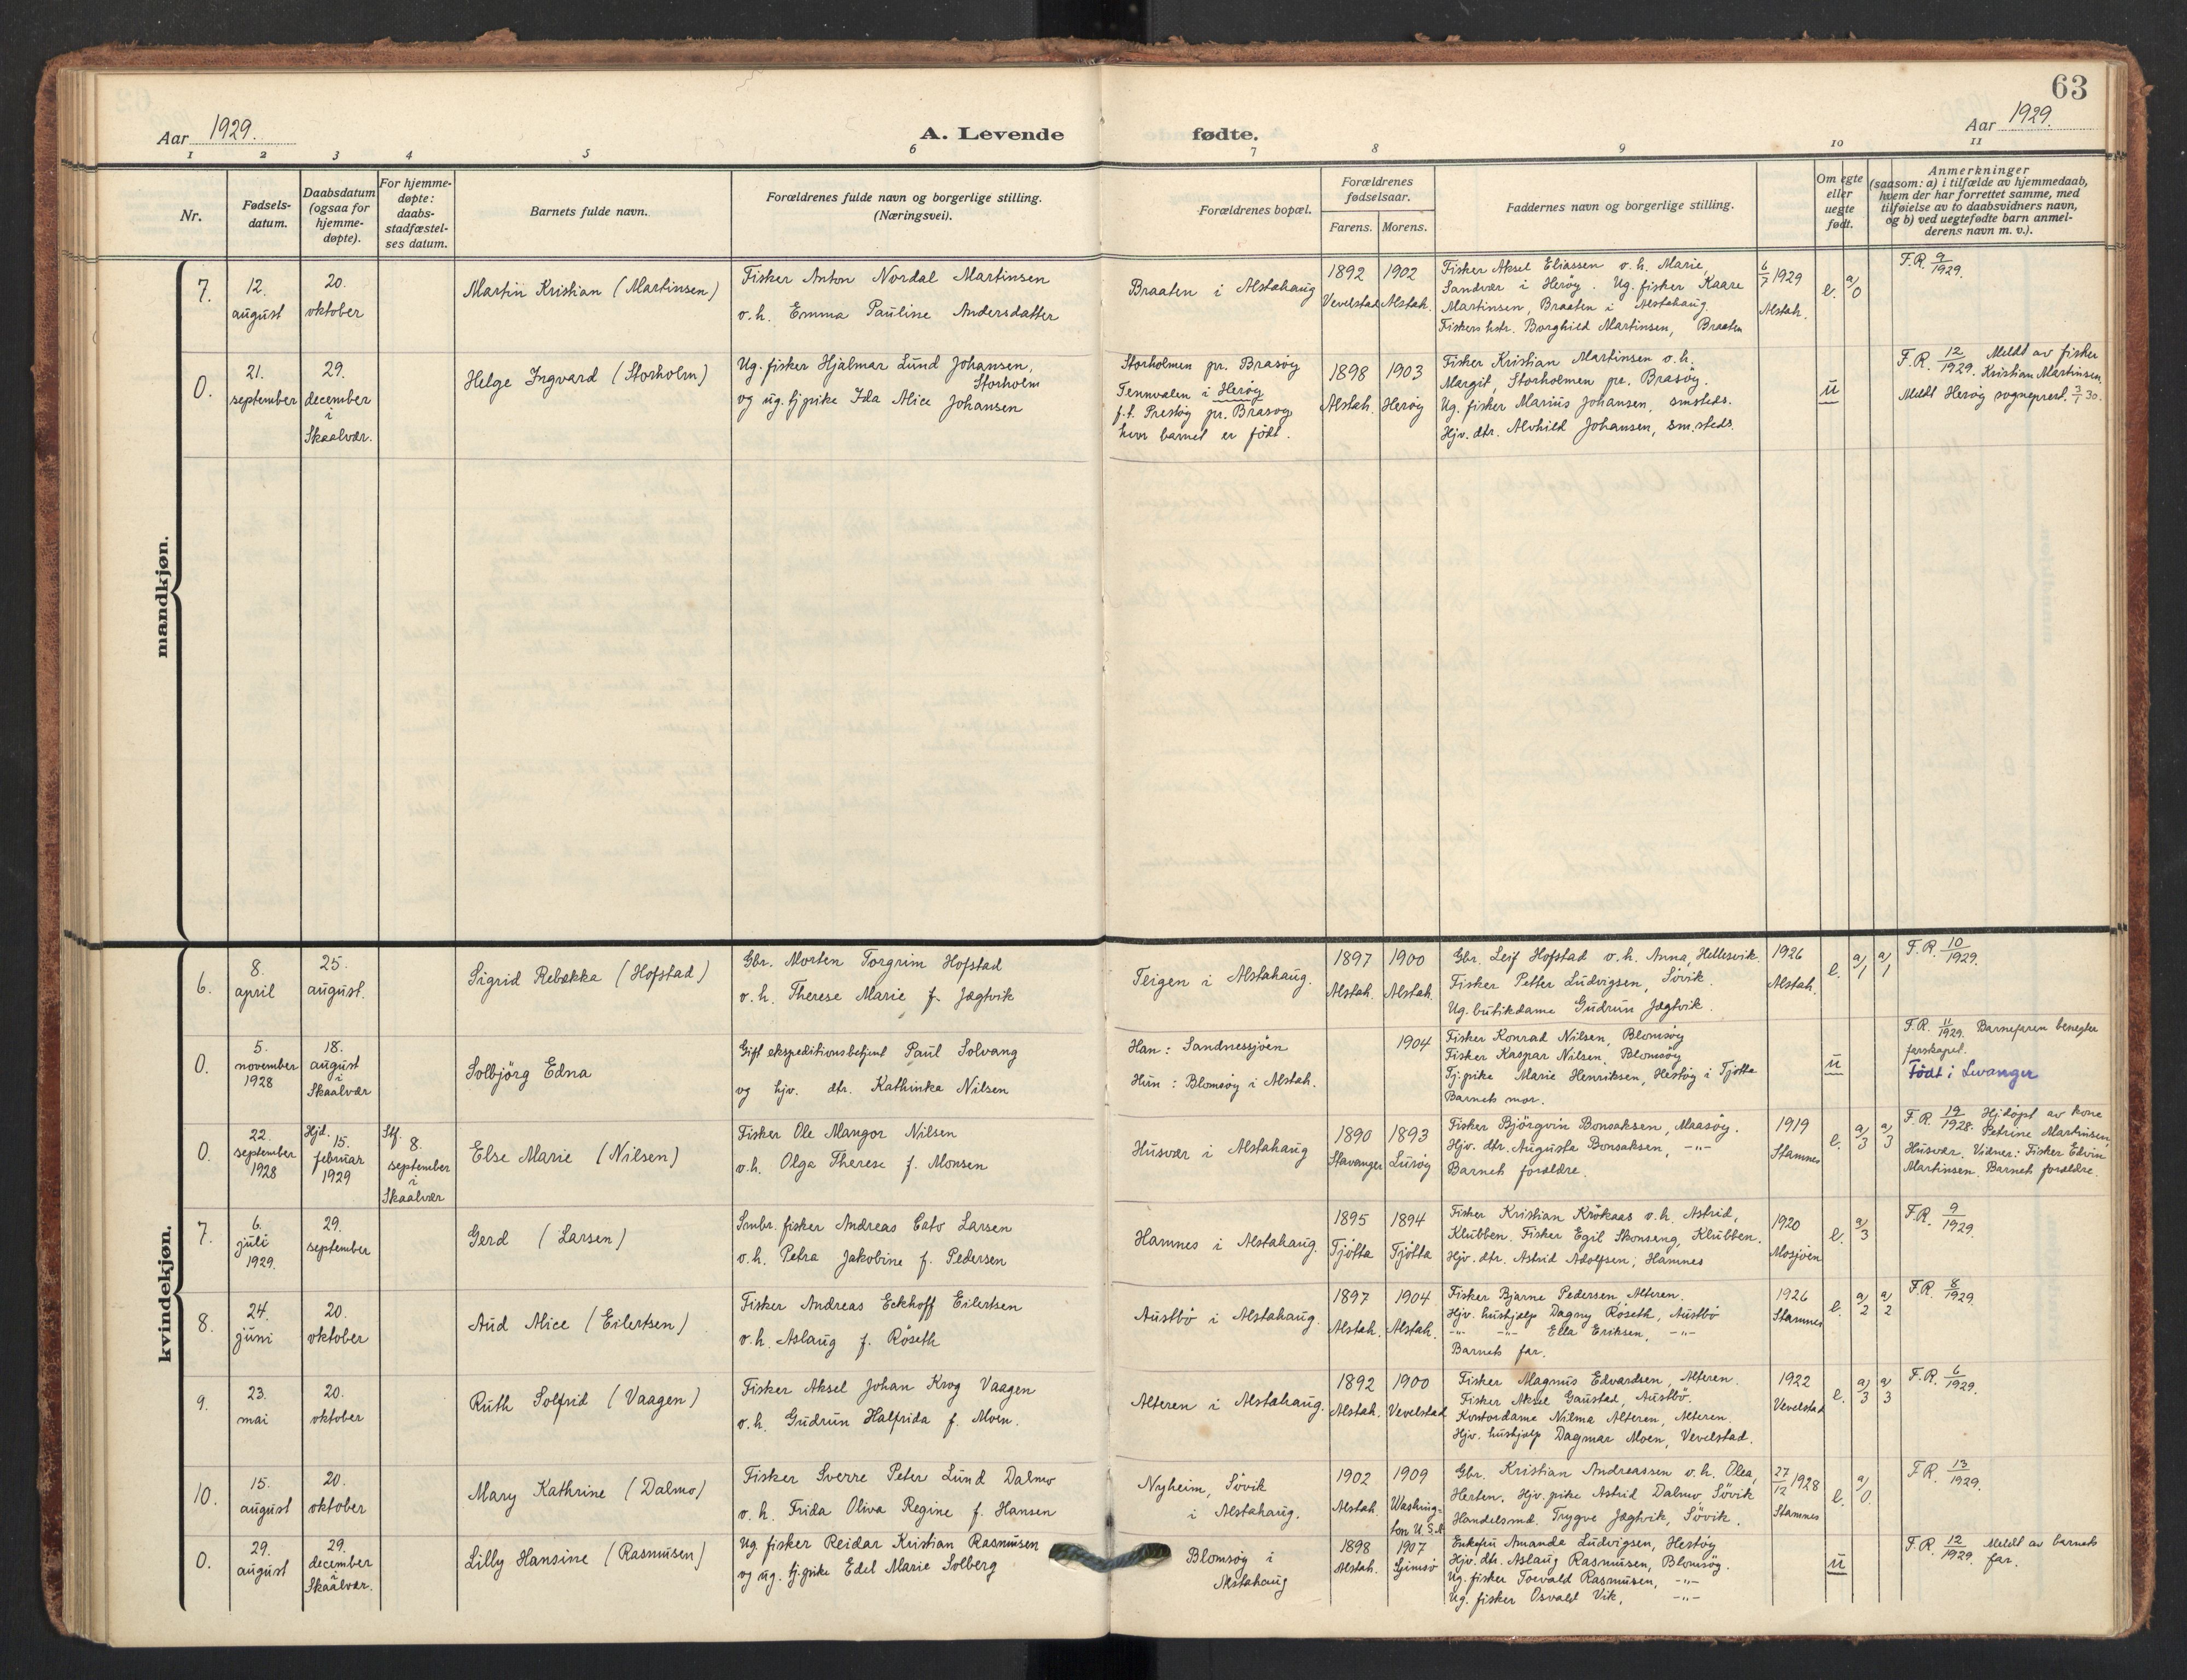 63
Aar 1929.
A. Levende fødte.
Aar 1929.
1 2 3 4 5 6 7 8 9 10 11
Nr.
Fødsels-
datum.
Daabsdatum
(ogsaa for
hjemme-
døpte).
For hjemme-
døpte:
daabs-
stadfæstel-
ses datum.
Barnets fulde navn.
Forældrenes fulde navn og borgerlige stilling.
(Næringsvei).
Forældrenes bopæl.
Forældrenes
fødselsaar.
Farens. Morens.
Faddernes navn og borgerlige stilling.
Om egte
eller
uegte
født.
Anmerkninger
(saasom: a) i tilfælde av hjemmedaab,
hvem der har forrettet samme, med
tilføielse av to daabsvidners navn,
og b) ved uegtefødte barn anmel-
derens navn m. v.).
mandkjøn.
7.
12.
august
20.
oktober
Martin Kristian (Martinsen)
Fisker Anton Nordal Martinsen
o.h. Emma Pauline Andersdatter
Braaten i Alstahaug
1892
Vevelstad
1902
Alstah.
Fisker Aksel Eliassen o.h. Marie,
Sandvær i Herøy. Ug. fisker Kaare
Martinsen, Braaten i Alstahaug.
Fiskers hstr. Borghild Martinsen, Braaten
6/7 1929
Alstah.
e.
a/0
F.R. 9/1929.
0.
21.
september
29.
december
i
Skaalvær.
Helge Ingvard (Storholm)
Ug. fisker Hjalmar Lund Johansen,
Storholm
og ug. tj.pike Ida Alice Johansen
Storholmen pr. Brasøy
Tennvalen i Herøy
f.t. Prestøy pr. Brasøy
hvor barnet er født.
1898
Alstah.
1903
Herøy
Fisker Kristian Martinsen o.h.
Margit, Storholmen pr. Brasøy.
Ug. fisker Marius Johansen, smsteds.
Hjv. dtr. Alvhild Johansen, sm.steds.
u
F.R. 12/1929. Meldt av fisker
Kristian Martinsen.
Meldt Herøy sogneprest. 3/1 30.
kvindekjøn.
6.
8.
april
25.
august.
Sigrid Rebekka (Hofstad)
Gbr. Morten Torgrim Hofstad
o.h. Therese Marie f. Jægtvik
Teigen i Alstahaug.
1897
Alstah.
1900
Alstah.
Gbr. Leif Hofstad o.h. Anna, Hellesvik.
Fisker Petter Ludvigsen, Søvik.
Ug. butikdame Gudrun Jægtvik.
1926
Alstah.
e.
a/1
a/1
F.R. 10/1929.
0.
5.
november
1928
18.
august
i
Skaalvær
Solbjörg Edna
Gift ekspeditionsbetjent Paul Solvang
og hjv. dtr. Kathinka Nilsen
Han: Sandnessjöen
Hun: Blomsöy i Alstah.
1904
Fisker Konrad Nilsen, Blomsöy
Fisker Kaspar Nilsen, Blomsöy
Tj.pike Marie Henriksen, Hestøy i Tjøtta
Barnets mor.
u
F.R. 11/1929. Barnefaren benegter
farskapet.
Födt i Levanger
0.
22.
september
1928
Hjd.
15.
februar
1929
Stf.
8.
september
i
Skaalvær
Else Marie (Nilsen)
Fisker Ole Mangor Nilsen
o.h. Olga Therese f. Monsen
Husvær i Alstahaug
1890
Stavanger
1893
Lurøy
Fisker Bjørgvin Bonsaksen, Maasøy.
Hjv. dtr. Augusta Bonsaksen, -"-
Barnets forældre.
1919
Stamnes
e.
a/3
a/3
F.R. 19/1928. Hj.døpt av kone
Petrine Martinsen,
Husvær. Vidner: Fisker Edvin
Martinsen. Barnets forældre.
7.
6.
juli
1929.
29.
september
Gerd (Larsen)
Smbr. fisker Andreas Cato Larsen
o.h. Petra Jakobine f. Pedersen
Hamnes i Alstahaug.
1895
Tjøtta
1894
Tjøtta
Fisker Kristian Krökaas o.h. Astrid,
Klubben. Fisker Egil Skonseng, Klubben.
Hjv. dtr. Astrid Adolfsen, Hamnes
1920
Mosjøen
e.
a/3
F.R. 9/1929
8.
24.
juni
20.
oktober
Aud Alice (Eilertsen)
Fisker Andreas Eckhoff Eilertsen
o.h. Aslaug f. Röseth
Austbö i Alstahaug.
1897
Alstah.
1904
Alstah.
Fisker Bjarne Pedersen, Alteren.
Hjv. hushjelp Dagny Röseth, Austbö
-"- -"- Ella Eriksen, -"-
Barnets far.
1926
Stamnes
e.
a/2
a/2
F.R. 8/1929.
9.
23.
mai
20.
oktober
Ruth Solfrid (Vaagen)
Fisker Aksel Johan Krog Vaagen
o.h. Gudrun Halfrida f. Moen.
Alteren i Alstahaug.
1892
Alstah.
1900
Vevelstad
Fisker Magnus Edvardsen, Alteren.
Fisker Aksel Gaustad, Austbö.
Kontordame Nilma Alteren, Alteren.
Hjv. hushjelp Dagmar Moen, Vevelstad.
1922
Vevelstad
e.
a/3
a/3
F.R. 6/1929.
10.
15.
august
20.
oktober
Mary Kathrine (Dalmo)
Fisker Sverre Peter Lund Dalmo
o.h. Frida Oliva Regine f. Hansen
Nyheim, Søvik
i Alstahaug.
1902
Alstah.
1909
Washing-
ton U.S.A
Gbr. Kristian Andreassen o.h. Olea,
Herten. Hjv. pike Astrid Dalmo, Søvik
Handelsmd. Trygve Jægtvik, Søvik.
27/12 1928
Stamnes
e.
a/0.
F.R. 13/1929.
0.
29.
august
29.
december
i
Skaalvær.
Lilly Hansine (Rasmussen)
Ug. fisker Reidar Kristian Rasmussen
og ug. tj.pike Edel Marie Solberg
Blomsøy i
Alstahaug
1898
Alstah.
1907
Gimsö
Enkefru Amanda Ludvigsen, Hestøy
Hjv. dtr. Aslaug Rasmussen, Blomsøy.
Ug. fisker Torvald Rasmussen, -"-
Ug. fisker Osvald Vik, -"-
u
F.R. 12/1929. Meldt av barnets
far.